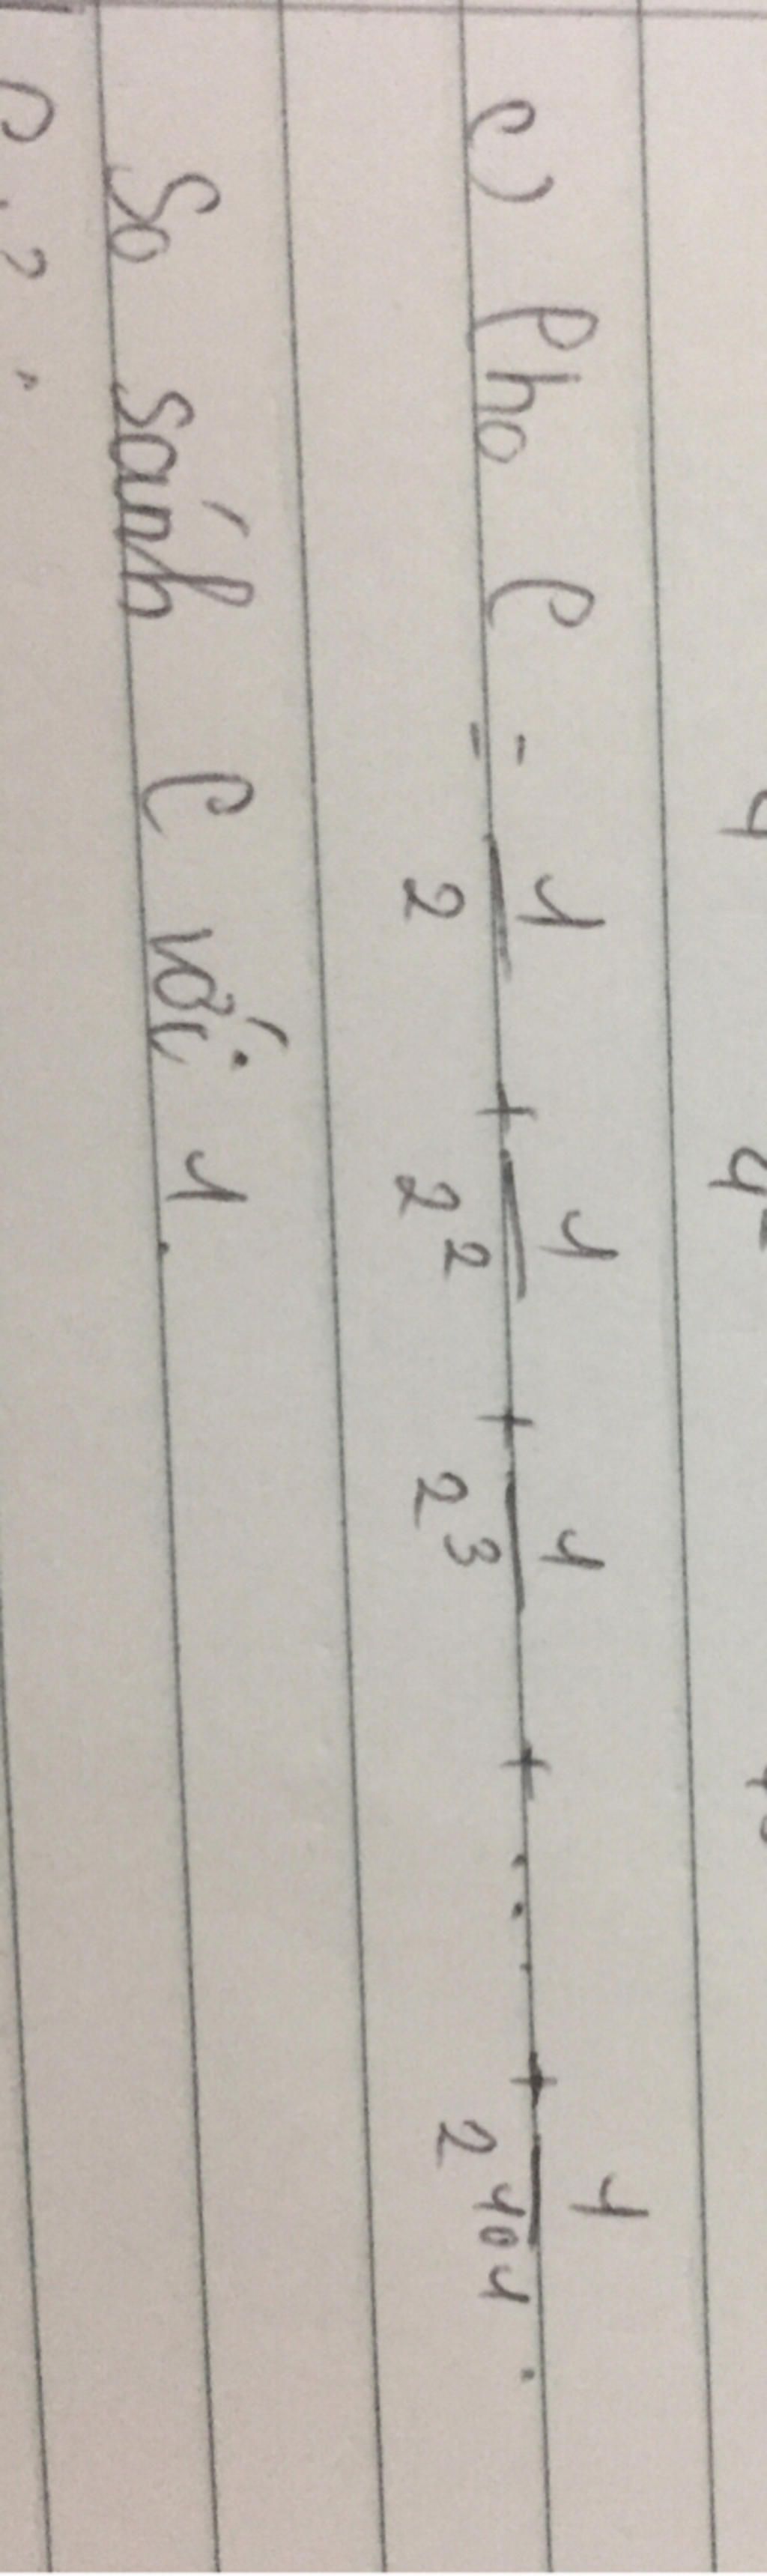 c) Cho C = 1/2 + 1/2² + 1/2³ + ... + 1/2¹⁰¹.
So sánh C với 1.